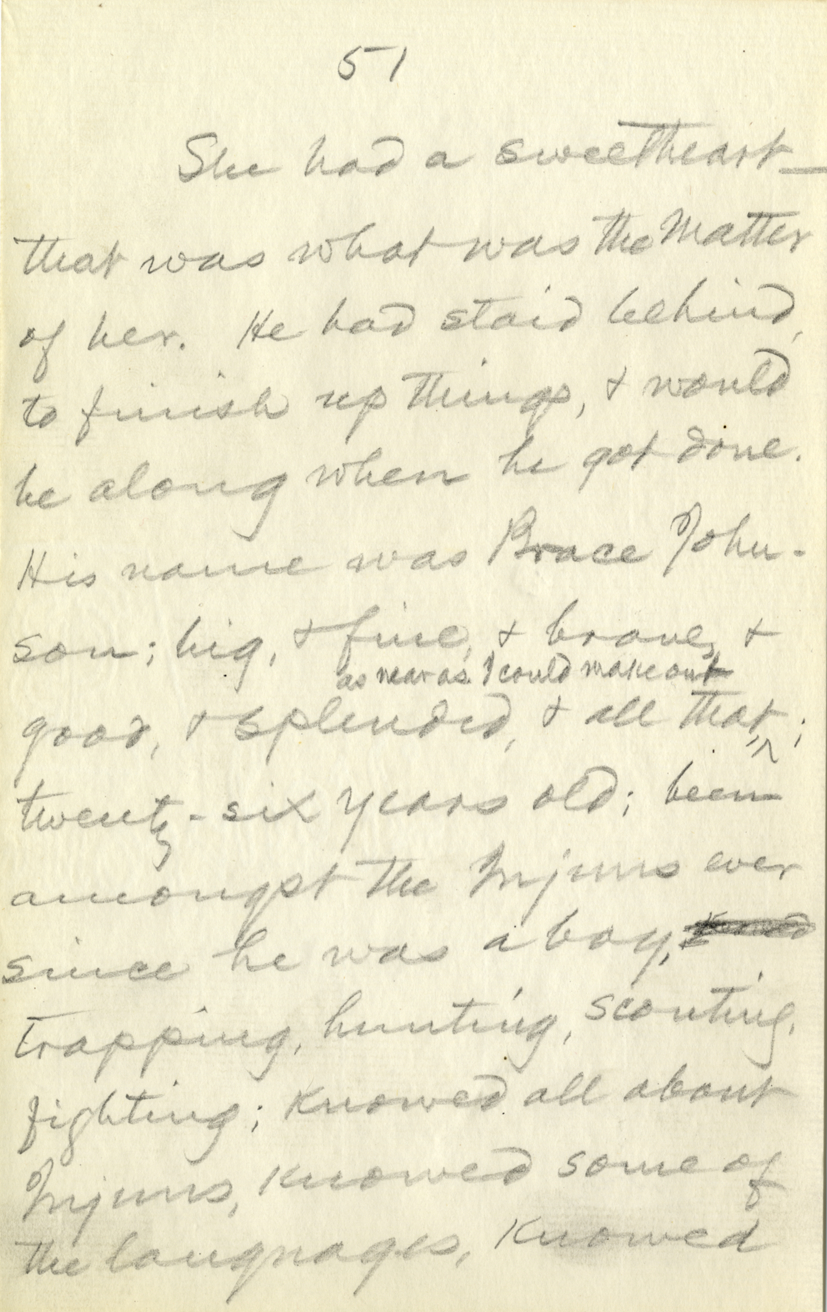 51
She had a sweetheart—
that was what was the matter
of her. He had staid behind,
to finish up things, & would
be along when he got done.
His name was Brace John-
son; big, & fine, & brave, &
as near as I could make out
good, & splendid, & all that;
twenty-six years old; been
amongst the Injuns ever
since he was a boy,
trapping, hunting, scouting,
fighting; knowed all about
Injuns, knowed some of
the languages, knowed